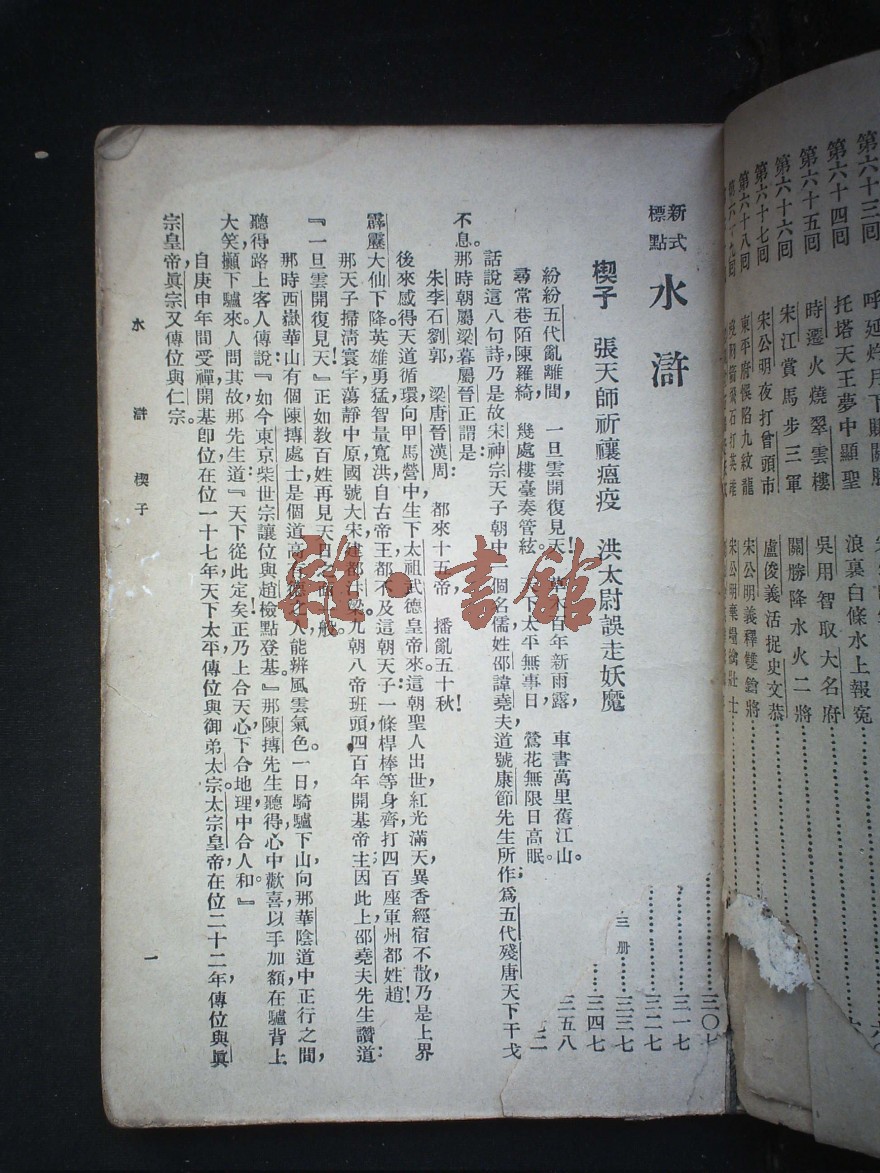 第六十三回 呼延灼月下賺關勝
第六十四回 托塔天王夢中顯聖 浪裏白條水上報寃
第六十五回 時遷火燒翠雲樓 吳用智取大名府
第六十六回 宋江賞馬步三軍 關勝降水火二將
第六十七回 宋公明夜打曾頭市 盧俊義活捉史文恭
第六十八回 東平府悞陷九紋龍 宋公明義釋雙鎗將
宋公明棄糧擒壯士
三〇七
三一七
三二七
三三七
三四七
三五八
三册
新式標點 水滸
楔子 張天師祈禳瘟疫 洪太尉誤走妖魔
紛紛五代亂離間，一旦雲開復見天！草木百年新雨露，車書萬里舊江山。
尋常巷陌陳羅綺，幾處樓臺奏管絃。天下太平無事日，鶯花無限日高眠。
話說這八句詩乃是故宋神宗天子朝中一個名儒，姓邵，諱堯夫，道號康節先生所作；爲五代殘唐天下干戈
不息。那時朝屬梁，暮屬晉，正謂是：
朱李石劉郭，梁唐晉漢周，都來十五帝，播亂五十秋！
後來感得天道循環，向甲馬營中生下太祖武德皇帝來。這朝聖人出世，紅光滿天，異香經宿不散，乃是上界
霹靂大仙下降。英雄勇猛，智量寬洪，自古帝王都不及這朝天子：一條桿棒等身齊，打四百座軍州都姓趙！
那天子掃清寰宇，蕩靜中原，國號大宋，建都汴梁。九朝八帝班頭，四百年開基帝主；因此上，邵堯夫先生讚道：
『一旦雲開復見天！』正如教百姓再見天日之面一般。
那時西嶽華山有個陳摶處士，是個道高有德之人，能辨風雲氣色。一日，騎驢下山，向那華陰道中正行之間，
聽得路上客人傳說：『如今東京柴世宗讓位與趙檢點登基。』那陳摶先生聽得，心中歡喜，以手加額，在驢背上
大笑，攧下驢來。人問其故，那先生道：『天下從此定矣！正乃上合天心，下合地理，中合人和。』
自庚申年間受禪，開基卽位，在位一十七年，天下太平，傳位與御弟太宗。太宗皇帝在位二十二年，傳位與眞
宗皇帝，眞宗又傳位與仁宗。
水滸 楔子
一
雜·書館